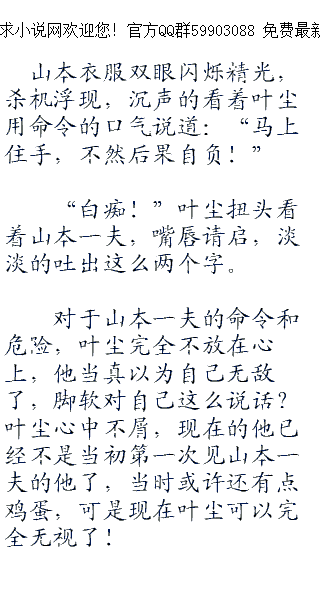 求小说网欢迎您！官方QQ群59903088 免费最新
山本衣服双眼闪烁精光，
杀机浮现，沉声的看着叶尘
用命令的口气说道：“马上
住手，不然后果自负！”
“白痴！”叶尘扭头看
着山本一夫，嘴唇请启，淡
淡的吐出这么两个字。
对于山本一夫的命令和
危险，叶尘完全不放在心
上，他当真以为自己无敌
了，脚软对自己这么说话？
叶尘心中不屑，现在的他已
经不是当初第一次见山本一
夫的他了，当时或许还有点
鸡蛋，可是现在叶尘可以完
全无视了！